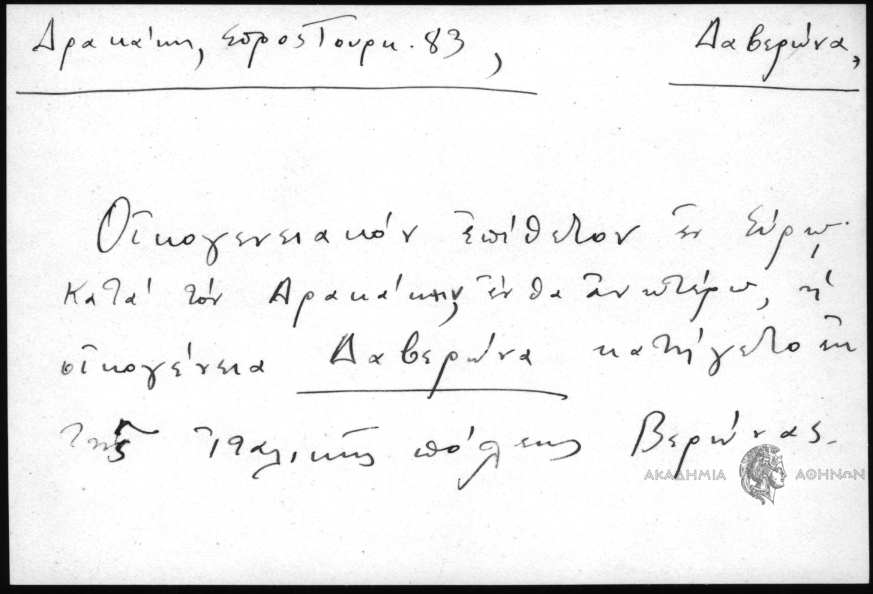 Δρακάκη, Σύρος Τουρκ. 83, Δαβερώνα,
Οἰκογενειακόν ἐπίθετον ἐν Σύρῳ.
Κατά τόν Δρακάκην, ἔνθα ἀνωτέρω, ἡ
οἰκογένεια Δαβερώνα κατήγετο ἐκ
τῆς Ἰταλικῆς πόλεως Βερώνας.
ΑΚΑΔΗΜΙΑ ΑΘΗΝΩΝ